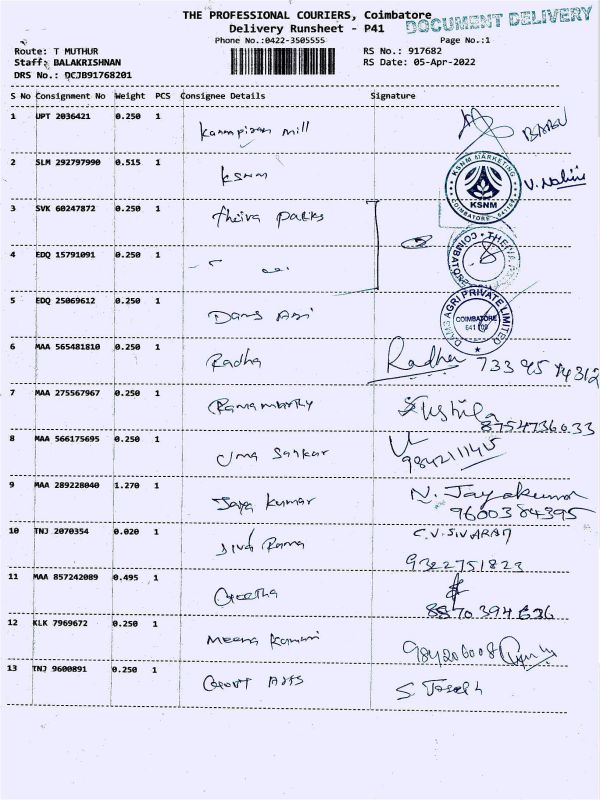 THE PROFESSIONAL COURIERS, Coimbatore
DOCUMENT DELIVERY
Delivery Runsheet - P41
Phone No.:0422-3505555 Page No.:1
Route: T MUTHUR RS No.: 917682
Staff: BALAKRISHNAN RS Date: 05-Apr-2022
DRS No.: DCJB91768201
S No Consignment No Weight PCS Consignee Details Signature
1 UPT 2036421 0.250 1 mill BABU
2 SLM 292797990 0.515 1 KSNM V. Nalini
KSNM MARKETING KSNM COIMBATORE
3 SVK 60247872 0.250 1 theiva
4 EDQ 15791091 0.250 1
COIMBATORE
5 EDQ 25069612 0.250 1 Dams Agri
DAMS AGRI PRIVATE LIMITED COIMBATORE
6 MAA 565481810 0.250 1 Radha Radha 733 95 74312
7 MAA 275567967 0.250 1 Ramamurthy Sushila
8754736033
8 MAA 566175695 0.250 1 Uma Sankar
9842111415
9 MAA 289228040 1.270 1 Jaya Kumar N. Jayakumar
9600384395
10 TNJ 2070354 0.020 1 Siva Rama C.V. SIVARAM
9322751823
11 MAA 857242089 0.495 1 Geetha
8870394636
12 KLK 7969672 0.250 1 Meena Kumari 984206008
13 TNJ 9600891 0.250 1 Govt Arts S. Joseph